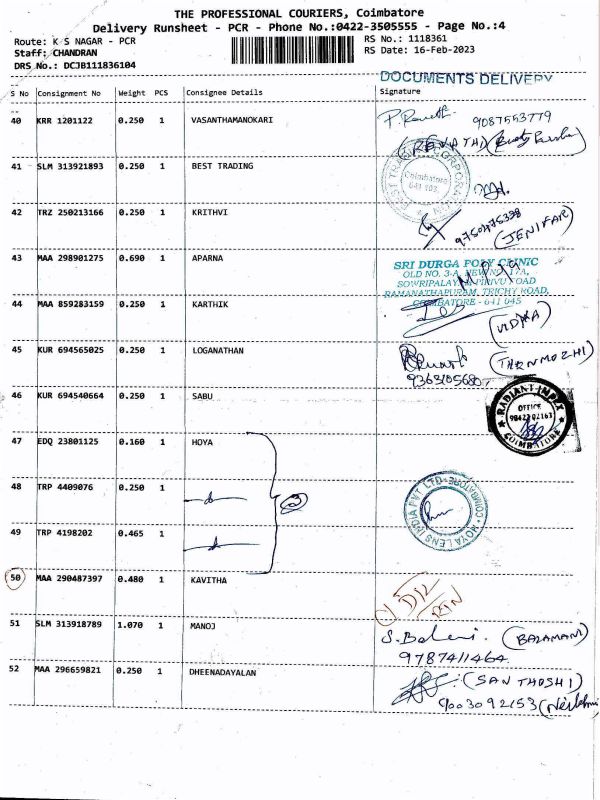 THE PROFESSIONAL COURIERS, Coimbatore
Delivery Runsheet - PCR - Phone No.:0422-3505555 - Page No.:4
Route: K S NAGAR - PCR RS No.: 1118361
Staff: CHANDRAN RS Date: 16-Feb-2023
DRS No.: DCJB111836104
DOCUMENTS DELIVERY
S No Consignment No Weight PCS Consignee Details Signature
40 KRR 1201122 0.250 1 VASANTHAMOKARI
9087553779
(REVATHI)
41 SLM 313921893 0.250 1 BEST TRADING
BEST TRADING CORPORATION
Coimbatore
641 103
42 TRZ 250213166 0.250 1 KRITHVI
(JENIFAR)
43 MAA 298901275 0.690 1 APARNA
SRI DURGA POLY CLINIC
OLD NO. 3-A, NEW NO. 17A,
SOWRIPALAYAM PIRIVU ROAD
RAMANATHAPURAM, TRICHY ROAD,
COIMBATORE - 641 045
44 MAA 859283159 0.250 1 KARTHIK
(VIDHYA)
45 KUR 694565025 0.250 1 LOGANATHAN
(THENMOZHI)
46 KUR 694540664 0.250 1 SABU
RADIANT IMPEX
OFFICE
COIMBATORE
47 EDQ 23801125 0.160 1 HOYA
48 TRP 4409076 0.250 1
3
HOYA LENS INDIA PVT LTD COIMBATORE
49 TRP 4198202 0.465 1
50 MAA 290487397 0.480 1 KAVITHA
D/L
RTN
51 SLM 313918789 1.070 1 MANOJ
S. Balani. (BALAMANI)
9787411464
52 MAA 296659821 0.250 1 DHEENADAYALAN
(SANTHOSHI)
9003092153